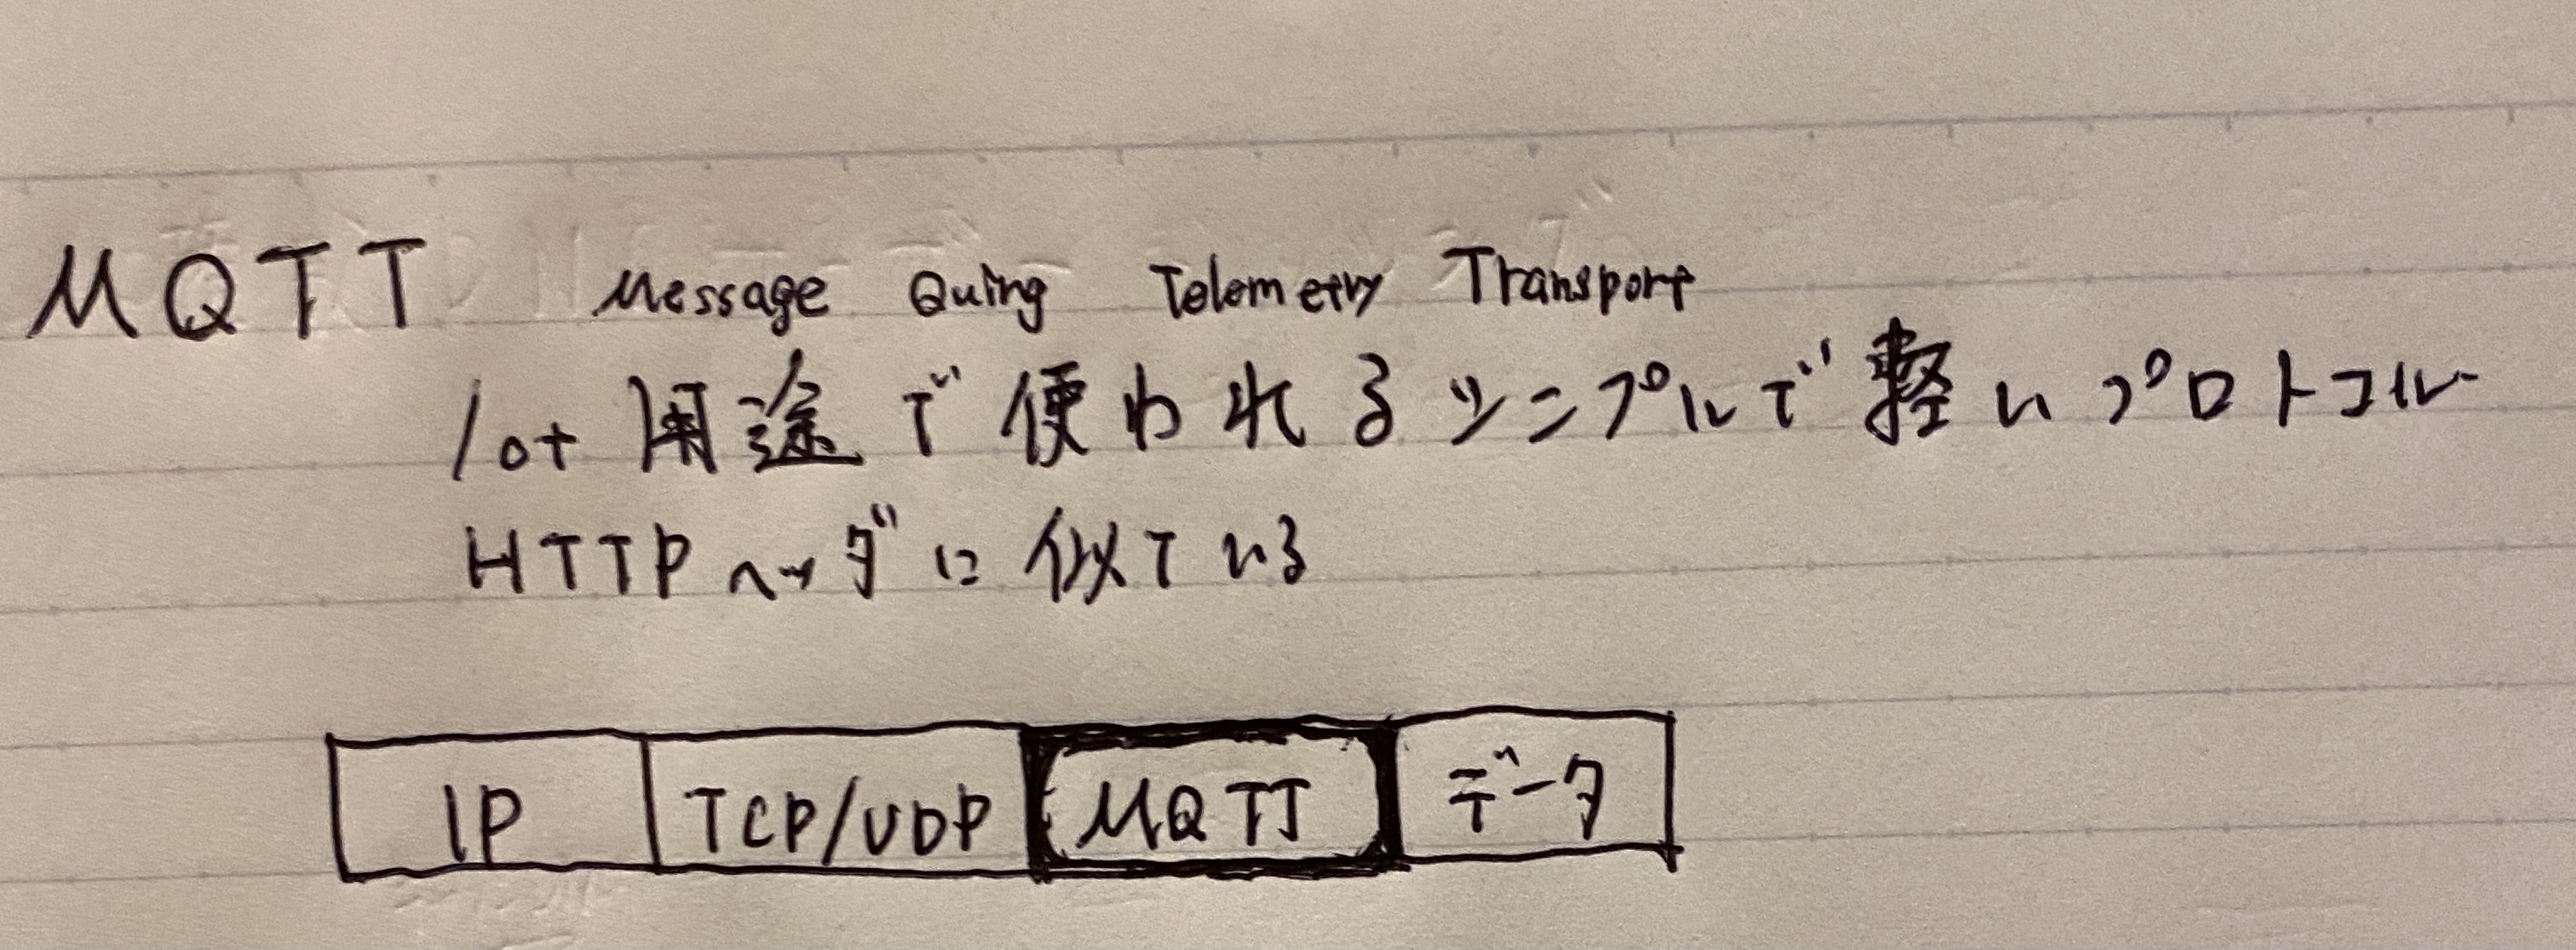 MQTT Message Quing Telemetry Transport
Iot 用途で使われるシンプルで軽いプロトコル
HTTPヘッダに似ている
IP TCP/UDP MQTT データ